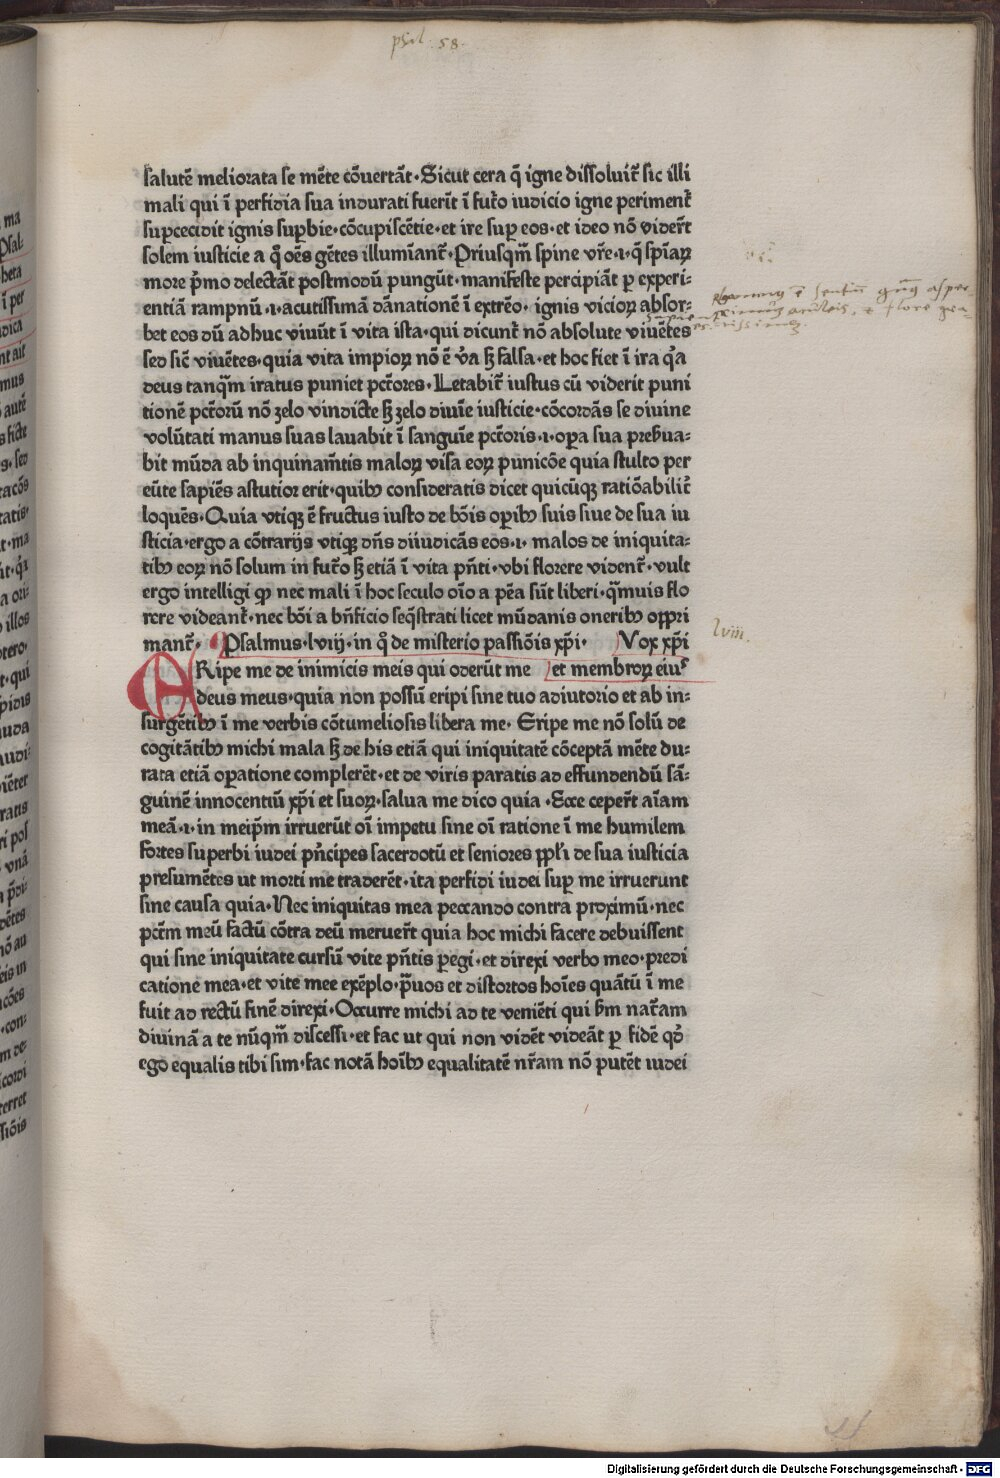 psal. 58.
salutē meliorata se mēte cōuertāt· Sicut cera q̄ igne dissoluit᷑ sic illi
mali qui ī perfidia sua indurati fuerīt ī fut᷑o iudicio igne periment᷑
suꝑcecidit ignis suꝑbie· cōcupiscētie· et ire suꝑ eos· et ideo nō vider̄t
solem iusticie a q̄ oēs gētes illumīant᷑· Priusqm̄ spine vr̄e·ı· q̄ spīaꝝ
more p̄mo delectāt postmodū pungūt· manifeste percipiāt ꝑ experi-
entiā rampnū·ı· acutissimā dānationē ī extrēo· ignis vicioꝝ absor-
bet eos dū adhuc viuūt ī vita ista· qui dicunt᷑ nō absolute viuētes
sed sic̄ viuētes· quia vita impioꝝ nō ē v̄a sꝫ falsa· et hoc fiet ī ira q̇a
deus tanqm̄ iratus puniet pct̄ores· Letabit᷑ iustus cū viderit puni
tionē pct̄orū nō zelo vindicte sꝫ zelo diuīe iusticie· cōcordās se diuine
volūtati manus suas lauabit ī sanguīe pct̄oris·ı· oꝑa sua preẜua-
bit mūda ab inquinam̄tis maloꝝ visa eoꝝ punicōe quia stulto per
eūte sapiēs astutior erit· quibꝫ consideratis dicet quicūqꝫ ratiōabilit᷑
loquēs· Quia vtiqꝫ ē fructus iusto de bōis oꝑibꝫ suis siue de sua iu
sticia· ergo a cōtrarijs vtiqꝫ dn̄s diiudicās eos·ı· malos de iniquita-
tibꝫ eoꝝ nō solum in fut᷑o sꝫ etiā ī vita pn̄ti· vbi florere vident᷑· vult
ergo intelligi qꝫ nec mali ī hoc seculo oīo a pēa sūt liberi· qm̄uis flo
rere videant᷑· nec bōi a bn̄ficio seq̄strati licet mūdanis oneribꝫ opp̄ri
mant᷑· Psalmus·lviij· in q̄ de misterio passiōis xp̄i· Vox xp̄i
ERipe me de inimicis meis qui oderūt me et membroꝝ eiuꝰ
deus meus· quia non possū eripi sine tuo adiutorio et ab in-
surgētibꝫ ī me verbis cōtumeliosis libera me· Eripe me nō solū de
cogitātibꝫ michi mala sꝫ de his etiā qui iniquitatē cōceptā mēte du-
rata etiā oꝑatione complerēt· et de viris paratis ad effundendū sā-
guinē innocentiū xp̄i et suoꝝ· salua me dico quia· Ecce ceper̄t aīam
meā·ı· in meip̄m irruerūt oī impetu sine oī ratione ī me humilem
fortes superbi iudei pn̄cipes sacerdotū et seniores ppl̄i de sua iusticia
presumētes ut morti me traderēt· ita perfidi iudei suꝑ me irruerunt
sine causa quia· Nec iniquitas mea peccando contra proximū· nec
pct̄m meū factū cōtra deū meruer̄t quia hoc michi facere debuissent
qui sine iniquitate cursū vite pn̄tis ꝑegi· et direxi verbo meo· predi
catione mea· et vite mee exēplo· p̄uos et distortos hoīes quātū ī me
fuit ad rectū finē direxi· Occurre michi ad te veniēti qui ẜm nat᷑am
diuinā a te nūqm̄ discessi· et fac ut qui non vidēt videāt ꝑ fidē qd̄
ego equalis tibi sim· fac notā hoībꝫ equalitatē nr̄am nō putēt iudei
lviii.
Digitalisierung gefördert durch die Deutsche Forschungsgemeinschaft - DFG